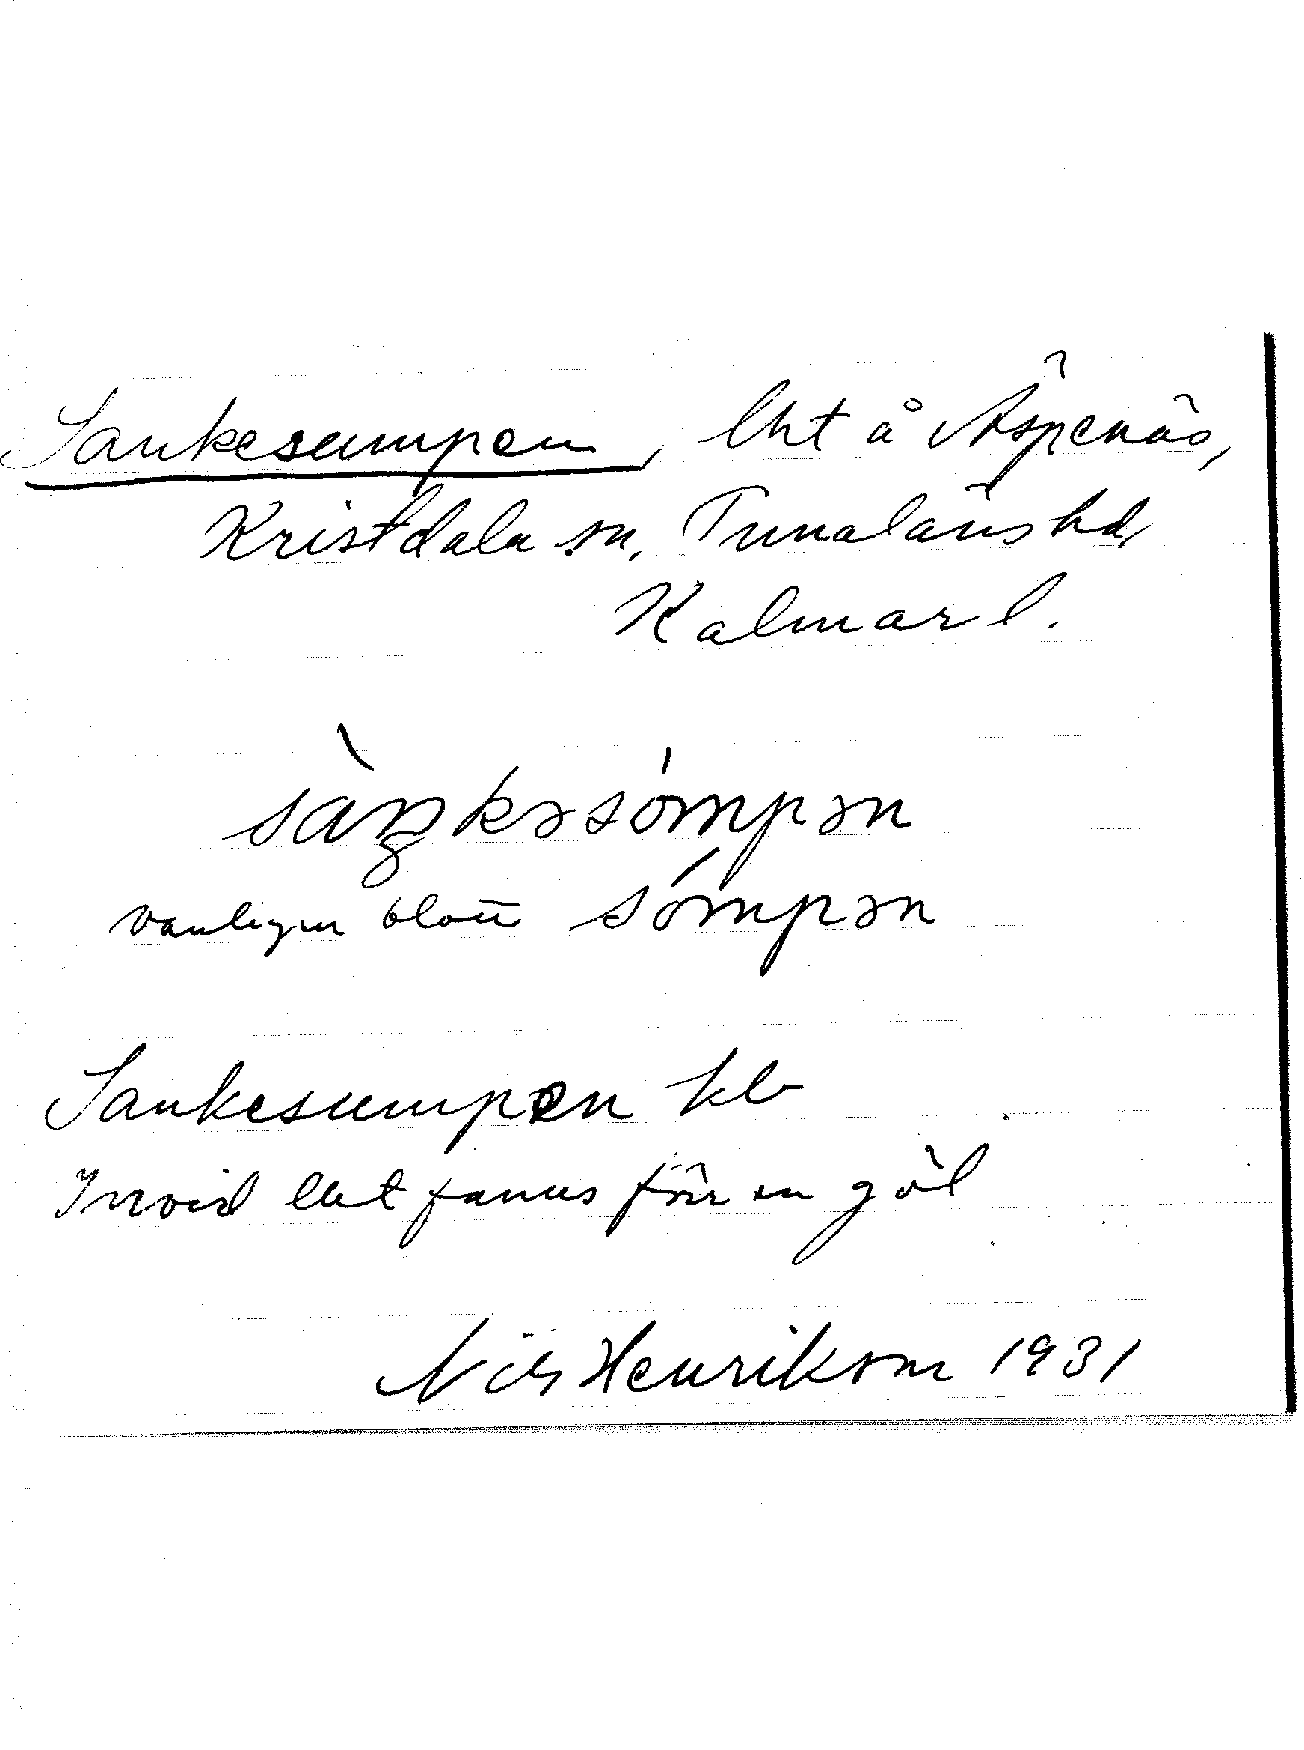 Sankesumpen, lht å Äspenäs,
Kristdala sn, Tunaläns hd,
Kalmar l.
sàŋkəsómpən
vanligen blott sómpən
Sankesumpen kb
Invid lht fanns förr en göl
Nils Henrikson 1931